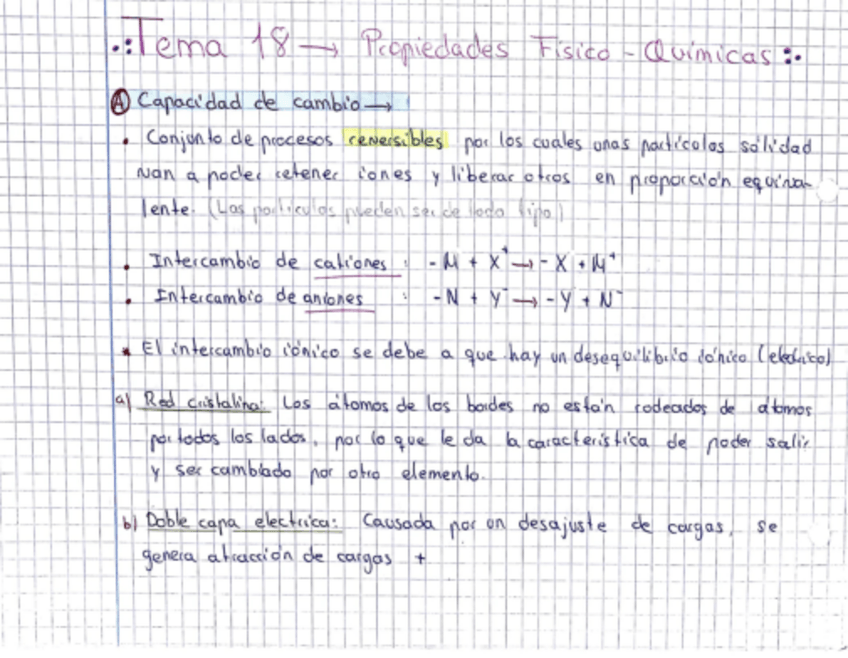 .:Tema 18 → Propiedades Físico-Químicas:.
Ⓐ Capacidad de cambio →
• Conjunto de procesos reversibles por los cuales unas partículas sólidad
van a poder retener iones y liberar otros en proporción equiva-
lente. (Las partículas pueden ser de todo tipo)
• Intercambio de cationes : -M + X⁺ → -X + M⁺
• Intercambio de aniones : -N + Y⁻ → -Y + N⁻
* El intercambio iónico se debe a que hay un desequilibrio iónico (eléctrico)
a) Red cristalina: Los átomos de los bordes no están rodeados de átomos
por todos los lados, por lo que le da la característica de poder salir
y ser cambiado por otro elemento.
b) Doble capa electrica: Causada por un desajuste de cargas, se
genera atracción de cargas +